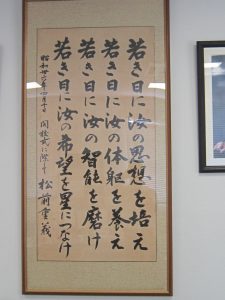 若き日に汝の思想を培え
若き日に汝の体躯を養え
若き日に汝の智能を磨け
若き日に汝の希望を星につなげ
昭和廿六年四月十日 開校式に際す 松前重義